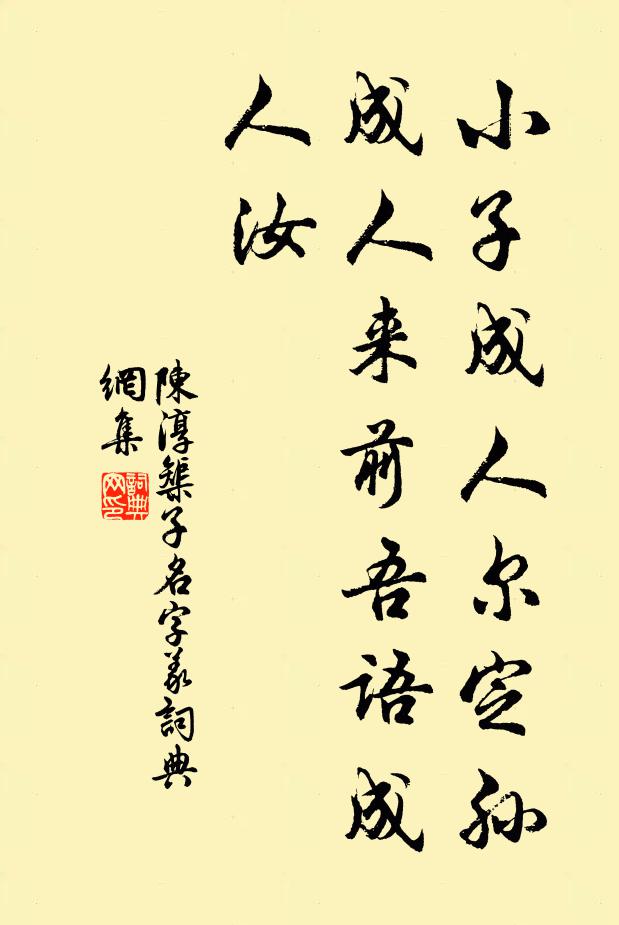 小子成人尔定孙
成人来前吾语成
人汝
陳淳榘子名字義詞典
網集
詞典
网印